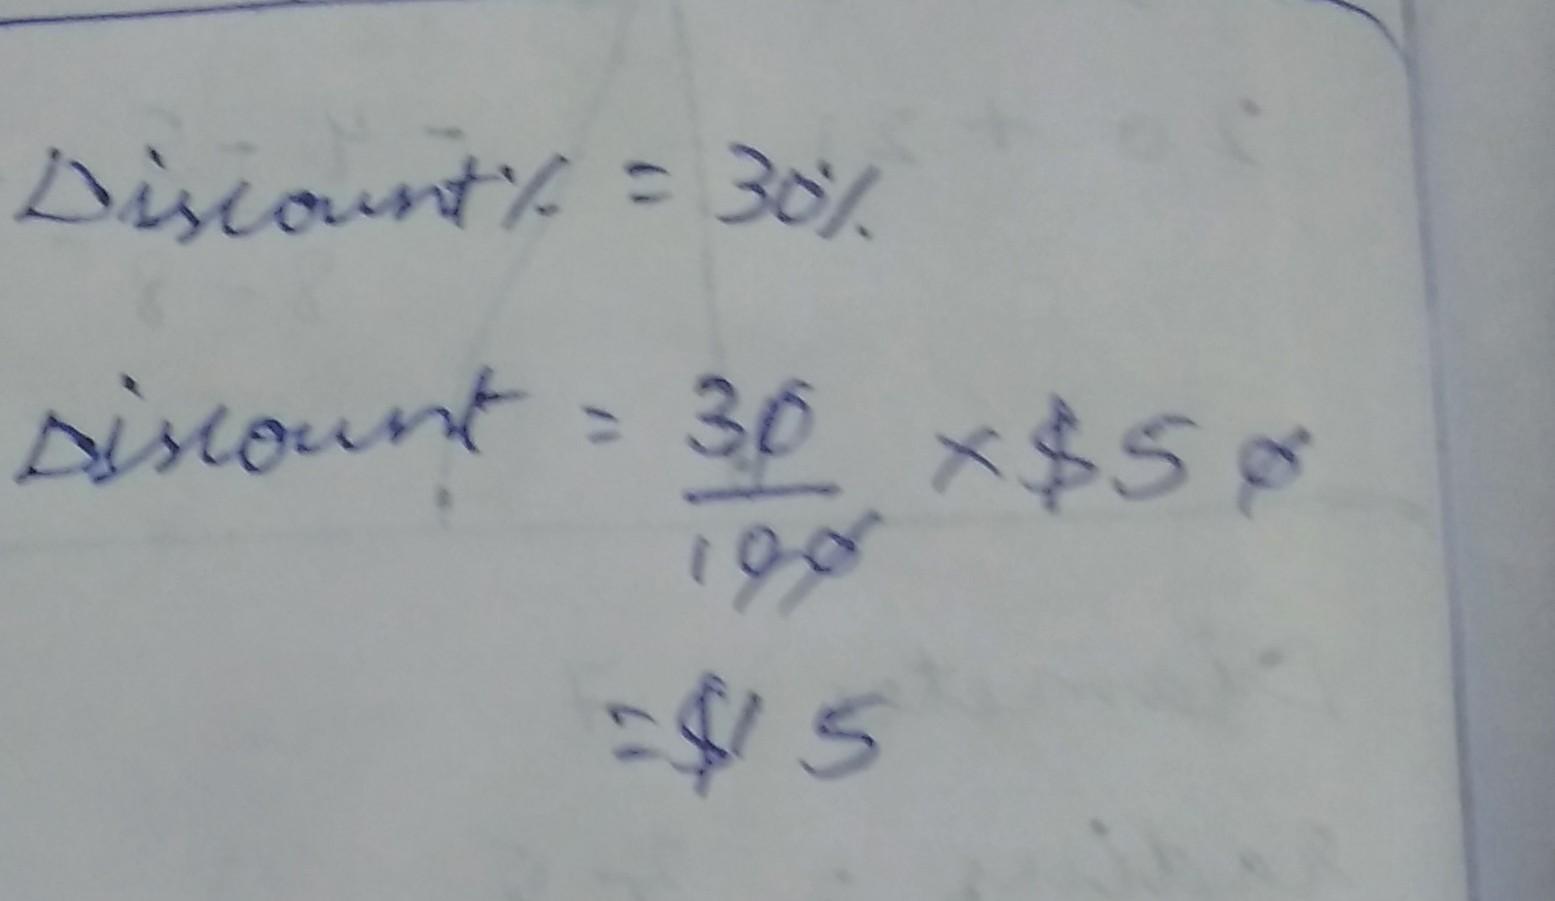 Discount% = 30%
Discount = 30/100 × $50
= $15